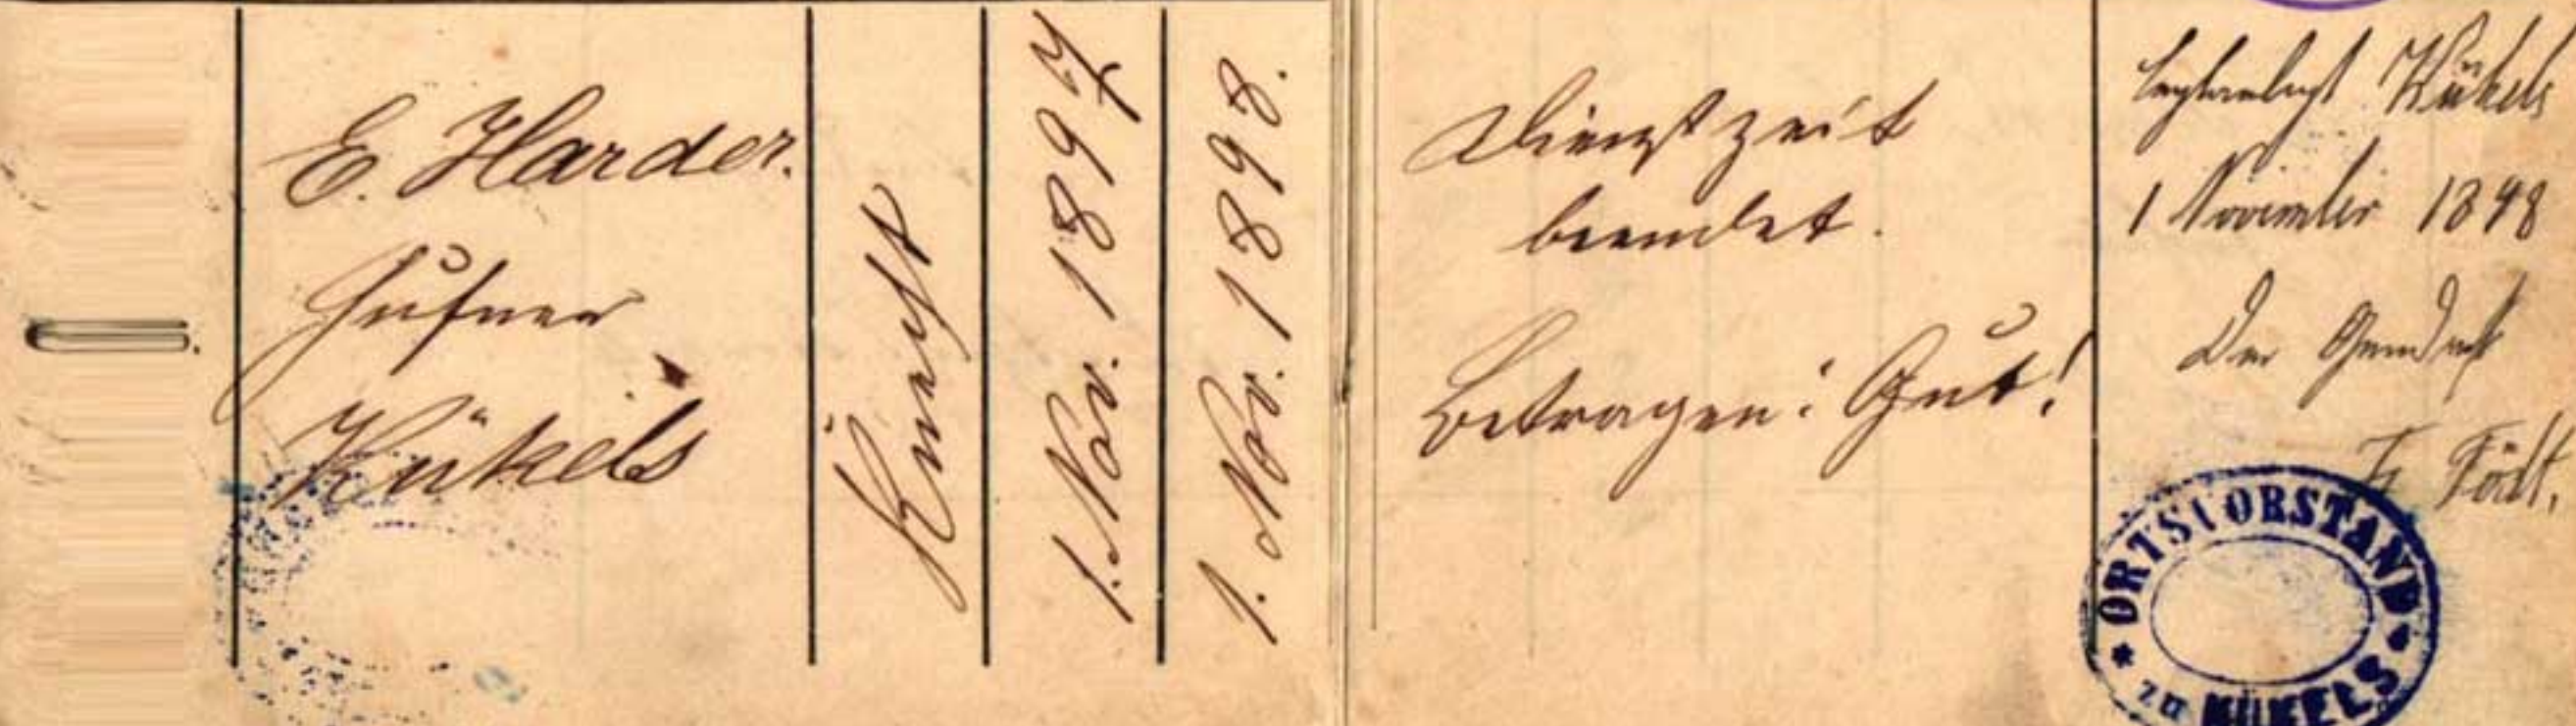 E. Harder.
Hufner
Kükels
Knecht
1. Nov. 1897
1. Nov. 1898.
Dienstzeit
beendet.
Betragen: Gut!
beglaubigt Kükels
1 November 1898
Der
ORTSVORSTAND
* ZU KÜKELS *